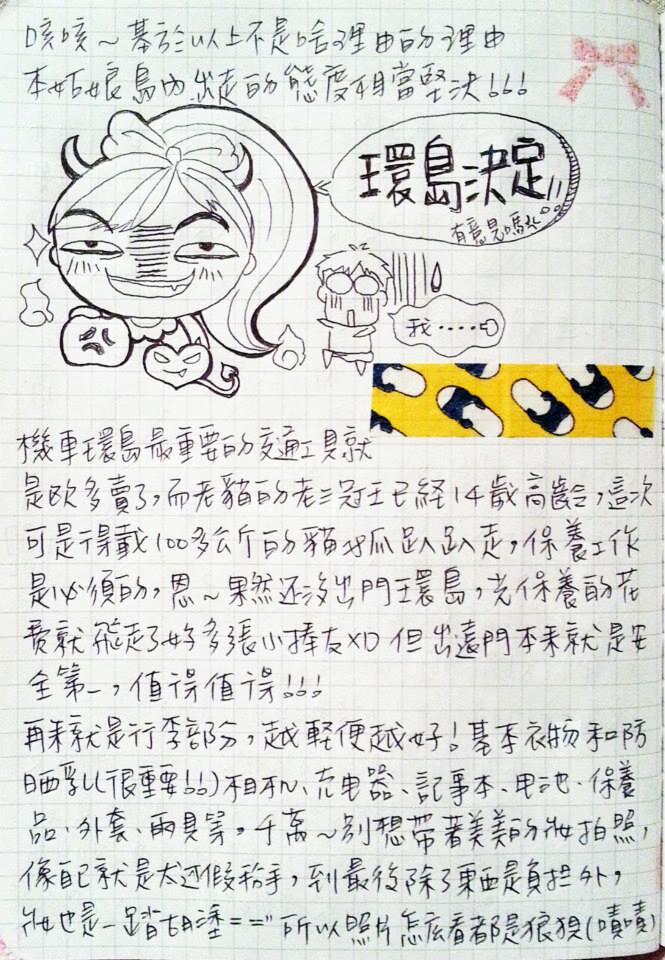 咳咳～基於以上不是啥理由的理由
本姑娘島內出走的態度相當堅決!!!
環島決定!!
有意見嗎
我……
機車環島最重要的交通工具就
是歐多賣了,而老貓的老三冠王已経14歲高齡,這次
可是得載100多公斤的貓爪趴趴走,保養工作
是必須的,恩～果然还沒出門環島,光保養的花
費就飛走了好多張小捧友XD 但出遠門本來就是安
全第一,值得值得!!!
再來就是行李部分,越輕便越好!基本衣物和防
晒乳(很重要!!)相机、充电器、記事本、电池、保養
品、外套、雨具等。千萬～別想帶著美美的妝拍照,
像自己就是太过假掰手,到最後除了東西是負担外,
妝也是一蹋胡塗=="所以照片怎庅看都是狼狽(嘖嘖)